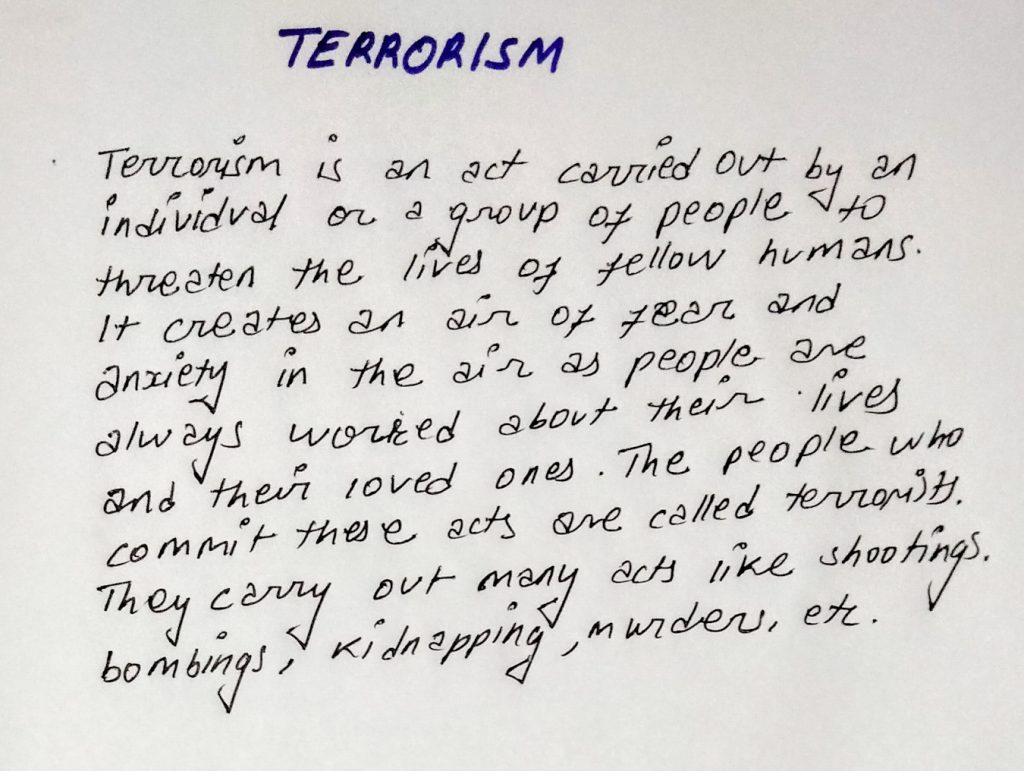 TERRORISM
Terrorism is an act carried out by an
individual or a group of people to
threaten the lives of fellow humans.
It creates an air of fear and
anxiety in the air as people are
always worried about their lives
and their loved ones. The people who
commit these acts are called terrorists.
They carry out many acts like shootings.
bombings, kidnapping, murders, etc.